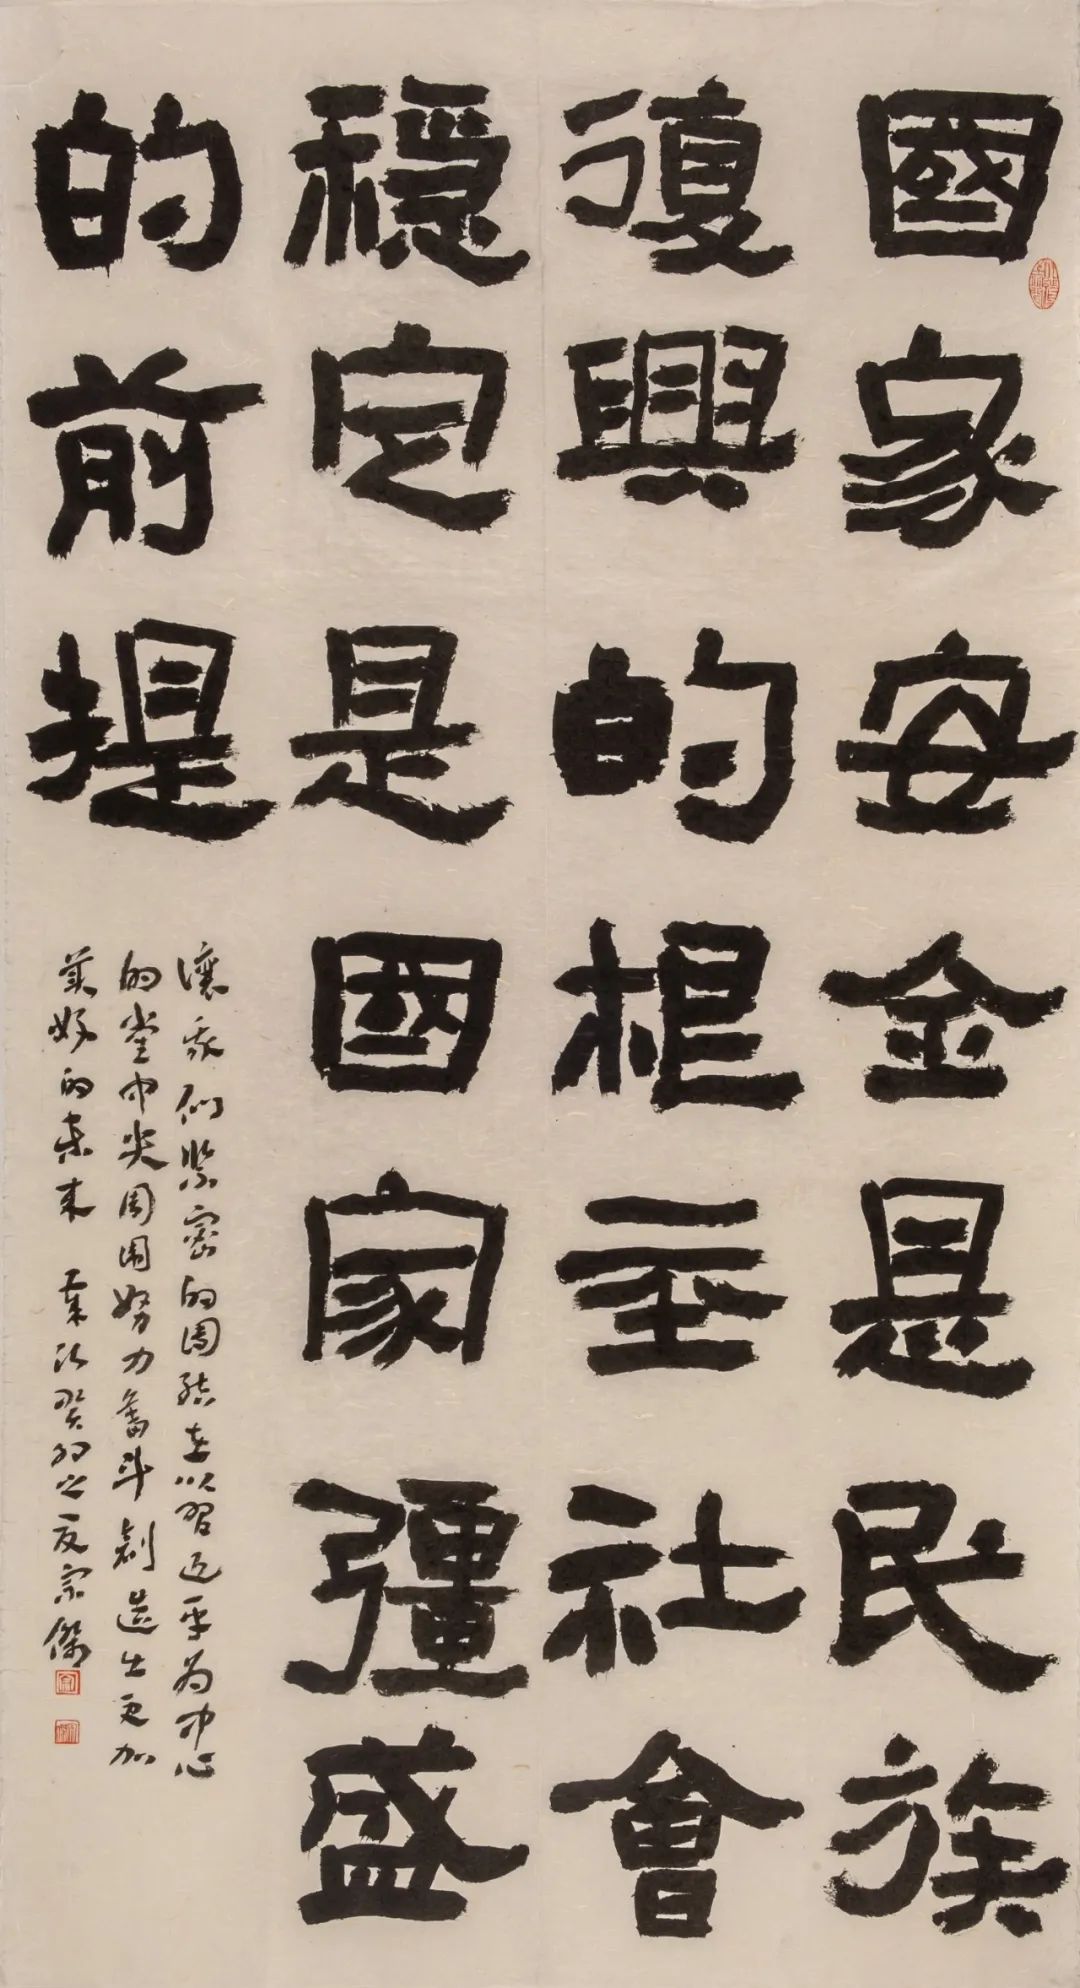 國家安金是民族
復興的根基社會
穩定是國家彊盛
的前提
讓我們緊密的團結在以習近平為中心
的党中央周圍努力奮斗創造出更加
美好的未來 歲次癸卯之夏宗傑